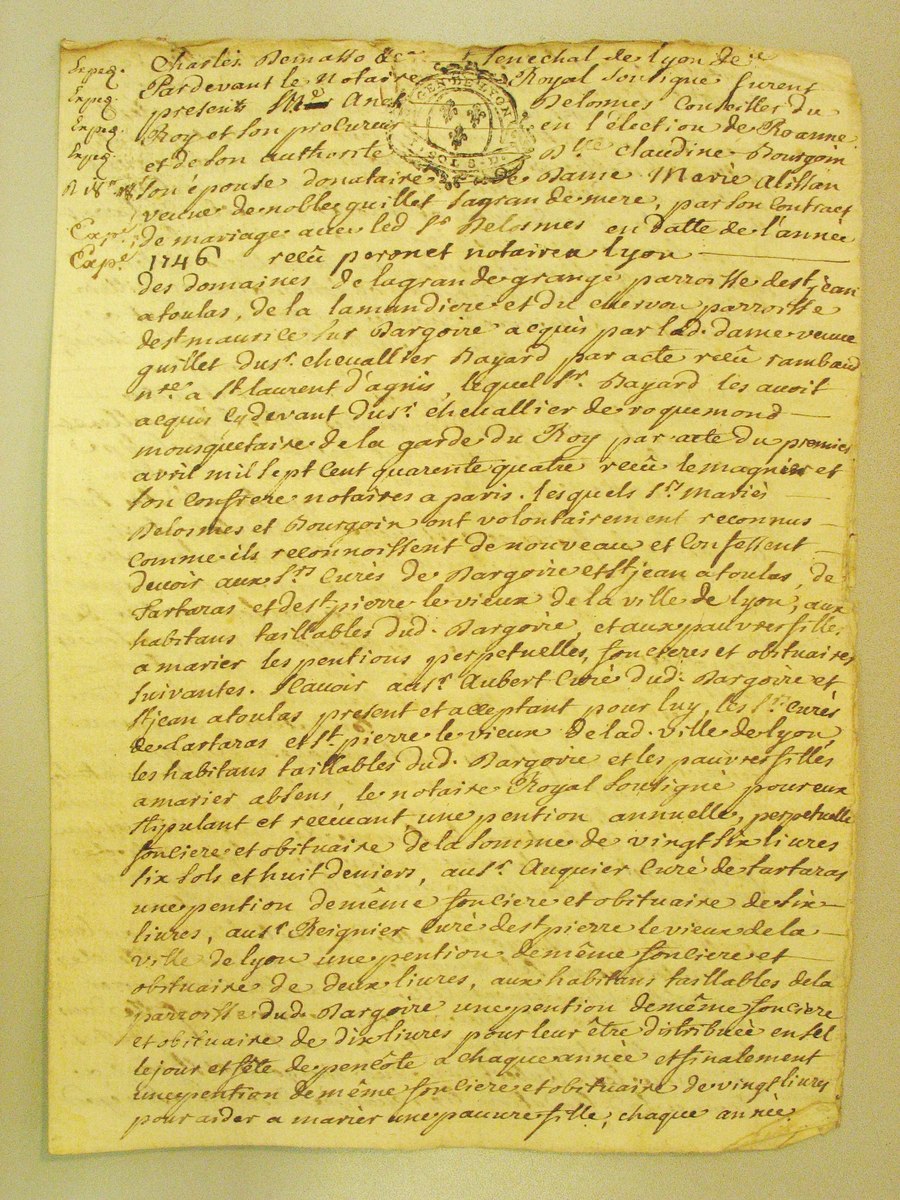 Charles Demasso &c Senechal de lyon &c
Pardevant le notaire Royal soussigné furent
presents Me Delosmes Conseiller du
Roy et son procureur en l'élection de Roanne
et de son authorité Dlle Claudine Bourgoin
son épouse donataire de Dame Marie Alissan
veuve de noble guillet sa grandemere, par son Contract
de mariage avec led. Sr Delosmes en datte de l'année
1746 reçû peronet notaire a lyon
des domaines de la grande grange parroisse de st jean
a toulas, de la lamandiere et du cuervon parroisse
de st maurice sur Dargoire acquis par lad. dame veuve
guillet du sr. chevallier Bayard par acte reçû rambaud
nre a St laurent d'agnis, lequel Sr. Bayard les avoit
acquis cydevant du sr. chevallier de roquemond
mousquetaire de la garde du Roy par acte du premier
avril mil sept Cent quarente quatre reçû lemagnier et
son Confrere notaires a paris. lesquels Srs mariés
Delosmes et Bourgoin ont volontairement reconnus
Comme ils reconnoissent de nouveau et Confessent
devoir aux Srs Curés de Dargoire et St jean a toulas, de
Tartaras et de st pierre le vieux de la ville de lyon, aux
habitans taillables dud. Dargoire, et aux pauvres filles
a marier les pentions perpetuelles, foncieres et obituaires
suivantes. Scavoir au sr. Aubert Curé dud. Dargoire et
St jean a toulas present et acceptant pour luy, les Srs Curés
de tartaras et St. pierre le vieux de lad. ville de lyon,
les habitans taillables dud. Dargoire et les pauvres filles
a marier absens, le notaire Royal soussigné pour eux
stipulant et recevant une pention annuelle, perpetuelle
fonciere et obituaire de la somme de vingt six livres
six sols et huit deniers, au sr. Auquier Curé de tartaras
une pention de même fonciere et obituaire de six
livres, au sr Reignier curé de st pierre le vieux de la
ville de lyon une pention de même fonciere et
obituaire de deux livres, aux habitans taillables de la
parroisse dud. Dargoire une pention de même fonciere
et obituaire de dix livres pour leur être distribuée en sel
le jour et fête de pencôte a chaque année et finalement
une pention de même fonciere et obituaire de vingt livres
pour aider a marier une pauvre fille, chaque année.